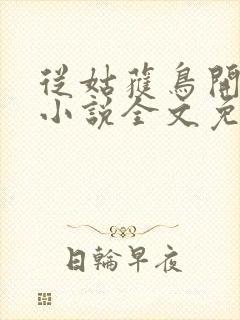 從姑獲鳥開
小說全文免
日輪早夜